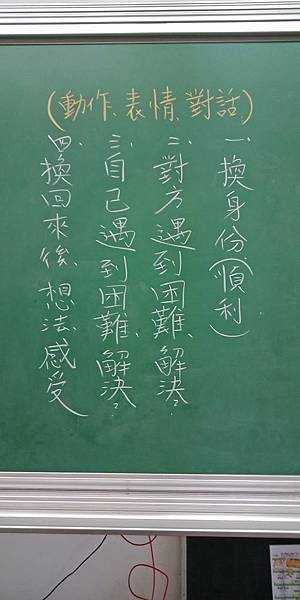 (動作、表情、對話)
一、換身份(順利)
二、對方遇到困難、解決?
三、自己遇到困難、解決?
四、換回來後、想法、感受